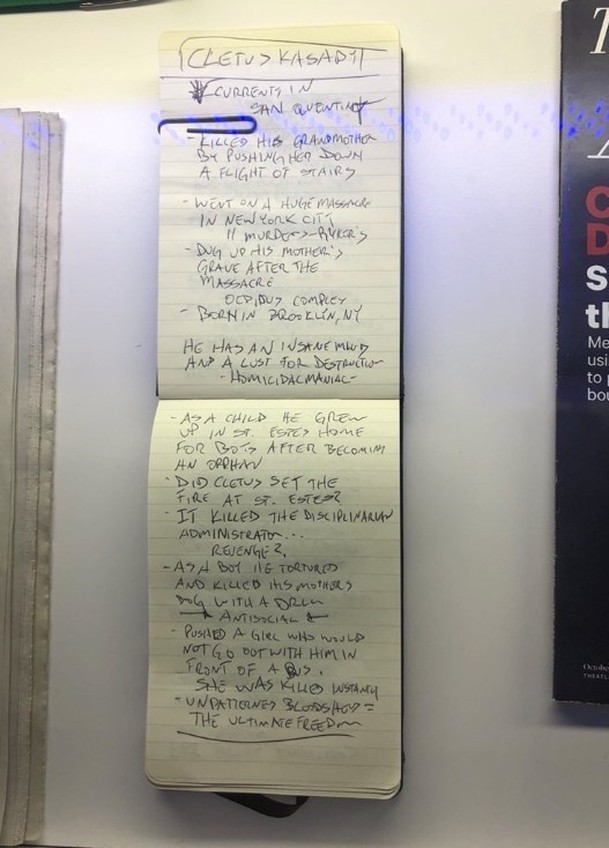 CLETUS KASADY
CURRENTS IN
SAN QUENTIN
- KILLED HIS GRANDMOTHER
BY PUSHING HER DOWN
A FLIGHT OF STAIRS
- WENT ON A HUGE MASSACRE
IN NEW YORK CITY
11 MURDERS - RYKER'S
- DUG UP HIS MOTHER'S
GRAVE AFTER THE
MASSACRE
OEDIPUS COMPLEX
- BORN IN BROOKLIN, NY
HE HAS AN INSANE MIND
AND A LUST FOR DESTRUCTION
- HOMICIDAL MANIAC -
- AS A CHILD HE GREW
UP IN ST. ESTES HOME
FOR BOYS AFTER BECOMING
AN ORPHAN
- DID CLETUS SET THE
FIRE AT ST. ESTES?
- IT KILLED THE DISCIPLINARIAN
ADMINISTRATOR...
REVENGE?
- AS A BOY HE TORTURED
AND KILLED HIS MOTHERS
DOG WITH A DRILL
ANTISOCIAL
- PUSHED A GIRL WHO WOULD
NOT GO OUT WITH HIM IN
FRONT OF A BUS.
SHE WAS KILLED INSTANTLY
- UNPATTERNED BLOODSHED =
THE ULTIMATE FREEDOM
T
C
D
S
th
Me
usi
to
bou
Octobe
THEATL